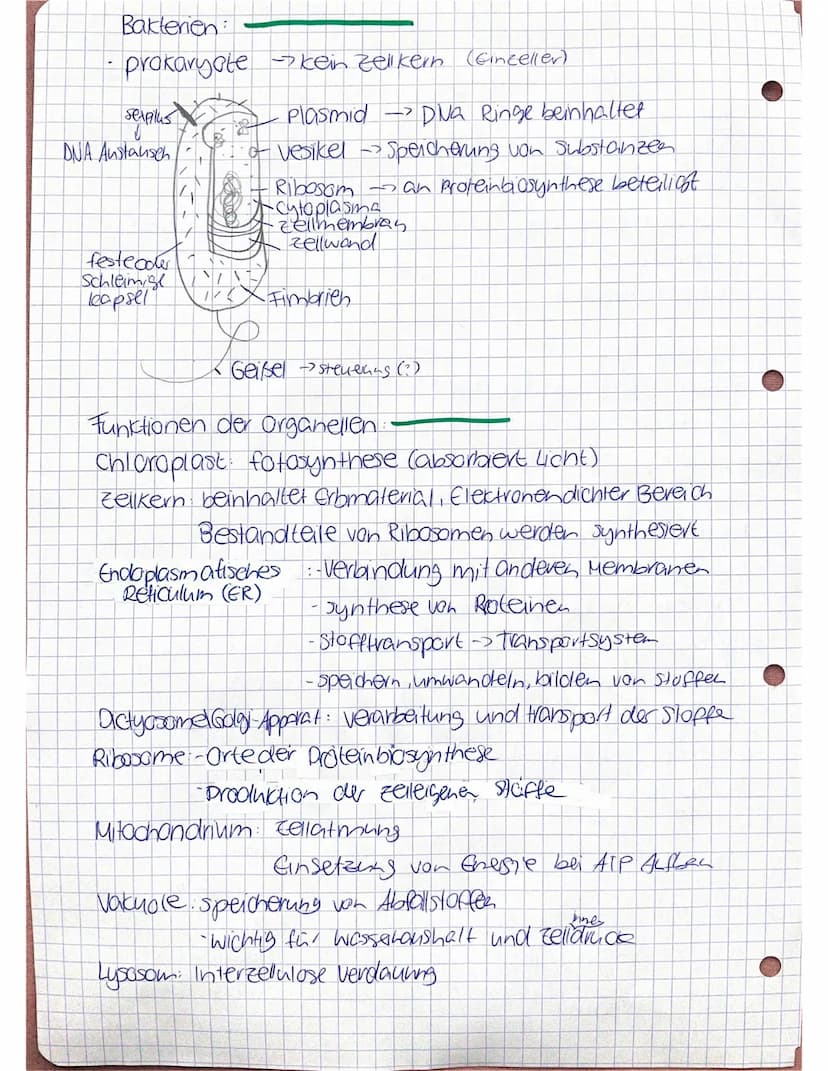 Bakterien:
· prokaryote → kein Zellkern (Einzeller)
Sexpilus
DNA Austausch
Plasmid → DNA Ringe beinhaltet
Vesikel → Speicherung von Substanzen
Ribosom → an Proteinbiosynthese beteiligt
Cytoplasma
Zellmembran
Zellwand
feste oder
schleimige
kapsel
Fimbrien
Geißel → steuerung (?)
Funktionen der Organellen:
Chloroplast: fotosynthese (absorbiert Licht)
Zellkern: beinhaltet Erbmaterial, Elektronendichter Bereich
Bestandteile von Ribosomen werden synthesiert
Endoplasmatisches :-Verbindung mit anderen Membranen
Reticulum (ER)
- Synthese von Proteinen
- Stofftransport -> Transportsystem
- speichern, umwandeln, bilden von stoffen
Dictyosome/Golgi-Apparat: verarbeitung und transport der Stoffe
Ribosome: - Orte der Proteinbiosynthese
- Produktion der zelleigenen Stoffe
Mitochondrium: Zellatmung
Einsetzung von Energie bei ATP Aufbau
Vakuole: speicherung von Abfallstoffen
- wichtig für Wasserhaushalt und Zellinnendruck
Lysosom: Interzellulose Verdauung